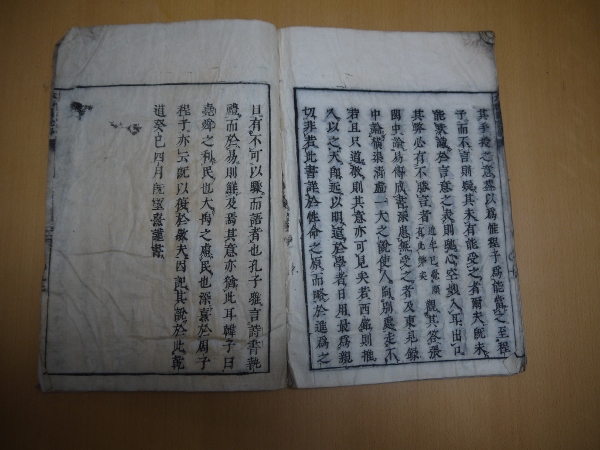 其手授之意蓋以爲惟程子爲能當之至程
子而不言則疑其未有能受之者爾夫旣未
能默識於言意之表則馳心空妙入耳出口
其弊必有不勝言者近年已覺頗有此弊矣觀其答張
閎中論易傳成書深患無受之者及東見錄
中論橫渠淸虛一大之說使人向別處走不
若且只道敬則其意亦可見矣若西銘則推
人以之天卽近以明遠於學者日用最爲親
切非若此書詳於性命之原而略於進爲之
目有不可以驟而語者也孔子雅言詩書執
禮而於易則鮮及焉其意亦猶此耳韓子曰
堯舜之利民也大禹之慮民也深熹於周子
程子亦云旣以復於敬夫因記其說於此乾
道癸巳四月旣望熹謹書